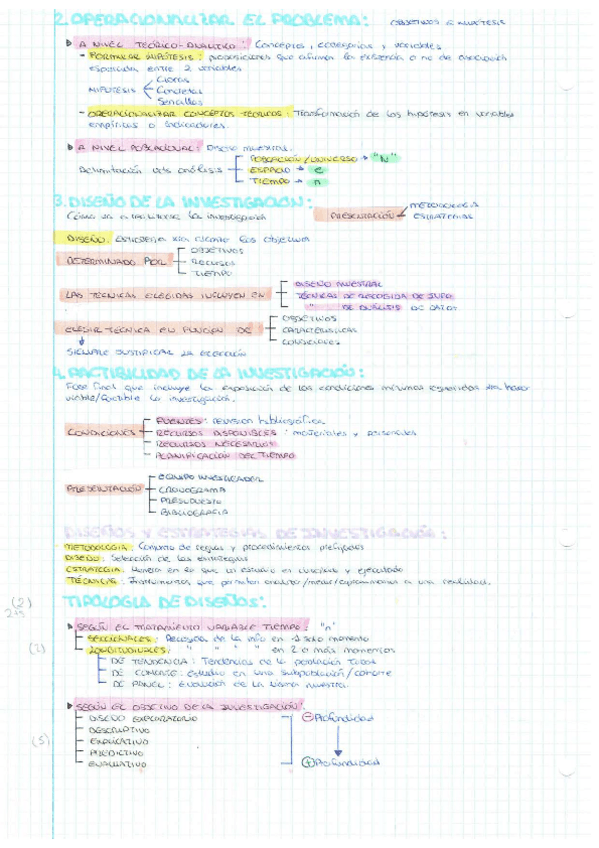 2. OPERACIONALIZAR EL PROBLEMA: OBJETIVOS E HIPÓTESIS
A NIVEL TEÓRICO-ANALÍTICO: Conceptos, categorías y variables
- FORMULAR HIPÓTESIS: proposiciones que afirman la existencia o no de asociación
esperada entre 2 variables
Claras
HIPÓTESIS Concretas
Sencillas
- OPERACIONALIZAR CONCEPTOS TEÓRICOS: Transformación de las hipótesis en variables
empíricas o indicadores.
A NIVEL POBLACIONAL: Diseño muestral.
POBLACIÓN/UNIVERSO → "N"
Delimitación uds análisis ESPACIO → e
TIEMPO → n
3. DISEÑO DE LA INVESTIGACIÓN:
Cómo va a realizarse la investigación PRESENTACIÓN METODOLOGÍA
ESTRATEGIAS
DISEÑO: Estrategia xra alcanzar los objetivos
OBJETIVOS
DETERMINADO POR RECURSOS
TIEMPO
DISEÑO MUESTRAL
LAS TÉCNICAS ELEGIDAS INFLUYEN EN TÉCNICAS DE RECOGIDA DE INFO
" DE ANÁLISIS DE DATOS
OBJETIVOS
ELEGIR TÉCNICA EN FUNCIÓN DE CARACTERÍSTICAS
CONDICIONES
SIEMPRE JUSTIFICAR LA ELECCIÓN
4. FACTIBILIDAD DE LA INVESTIGACIÓN:
Fase final que incluye la exposición de las condiciones mínimas requeridas xra hacer
viable/factible la investigación.
FUENTES: revisión bibliográfica
CONDICIONES RECURSOS DISPONIBLES: materiales y personales
RECURSOS NECESARIOS
PLANIFICACIÓN DEL TIEMPO
EQUIPO INVESTIGADOR
PRESENTACIÓN CRONOGRAMA
PRESUPUESTO
BIBLIOGRAFÍA
DISEÑOS Y ESTRATEGIAS DE INVESTIGACIÓN:
METODOLOGÍA: Conjunto de reglas y procedimientos prefijados
DISEÑO: Selección de las estrategias
ESTRATEGIA: Manera en la que un estudio es diseñado y ejecutado
TÉCNICAS: Instrumentos que permiten analizar/medir/aproximarnos a una realidad.
(2) TIPOLOGÍA DE DISEÑOS:
SEGÚN EL TRATAMIENTO VARIABLE TIEMPO: "n"
SECCIONALES: Recogida de la info en 1 solo momento
(2) LONGITUDINALES: " " " " en 2 o más momentos
DE TENDENCIA: Tendencias de la población
DE COHORTE: estudio en una subpoblación/cohorte
DE PANEL: Evolución de la misma muestra.
SEGÚN EL OBJETIVO DE LA INVESTIGACIÓN:
DISEÑO EXPLORATORIO - Profundidad
DESCRIPTIVO
(5) EXPLICATIVO
PREDICTIVO
EVALUATIVO + Profundidad